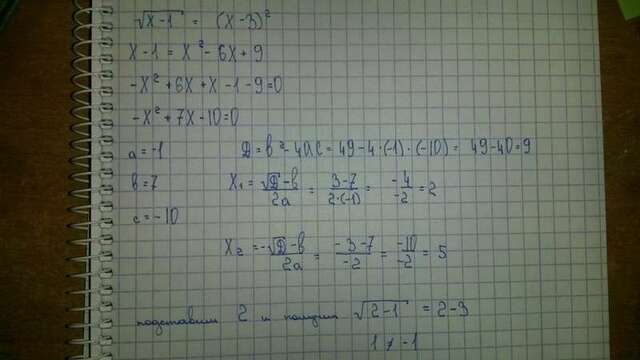 √x-1 = (x-3)²
x-1 = x² - 6x + 9
-x² + 6x + x - 1 - 9 = 0
-x² + 7x - 10 = 0
a = -1 D = b² - 4ac = 49 - 4·(-1)·(-10) = 49 - 40 = 9
b = 7 x₁ = √D - b / 2a = 3-7 / 2·(-1) = -4 / -2 = 2
c = -10
x₂ = -√D - b / 2a = -3-7 / -2 = -10 / -2 = 5
подставим 2 и получим √2-1 = 2-3
1 ≠ -1